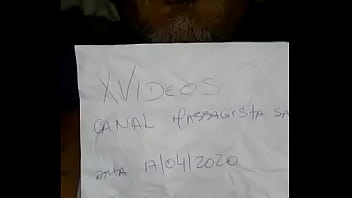 XVIDEOS
CANAL MASSAGISTA SP
DATA 17/04/2020